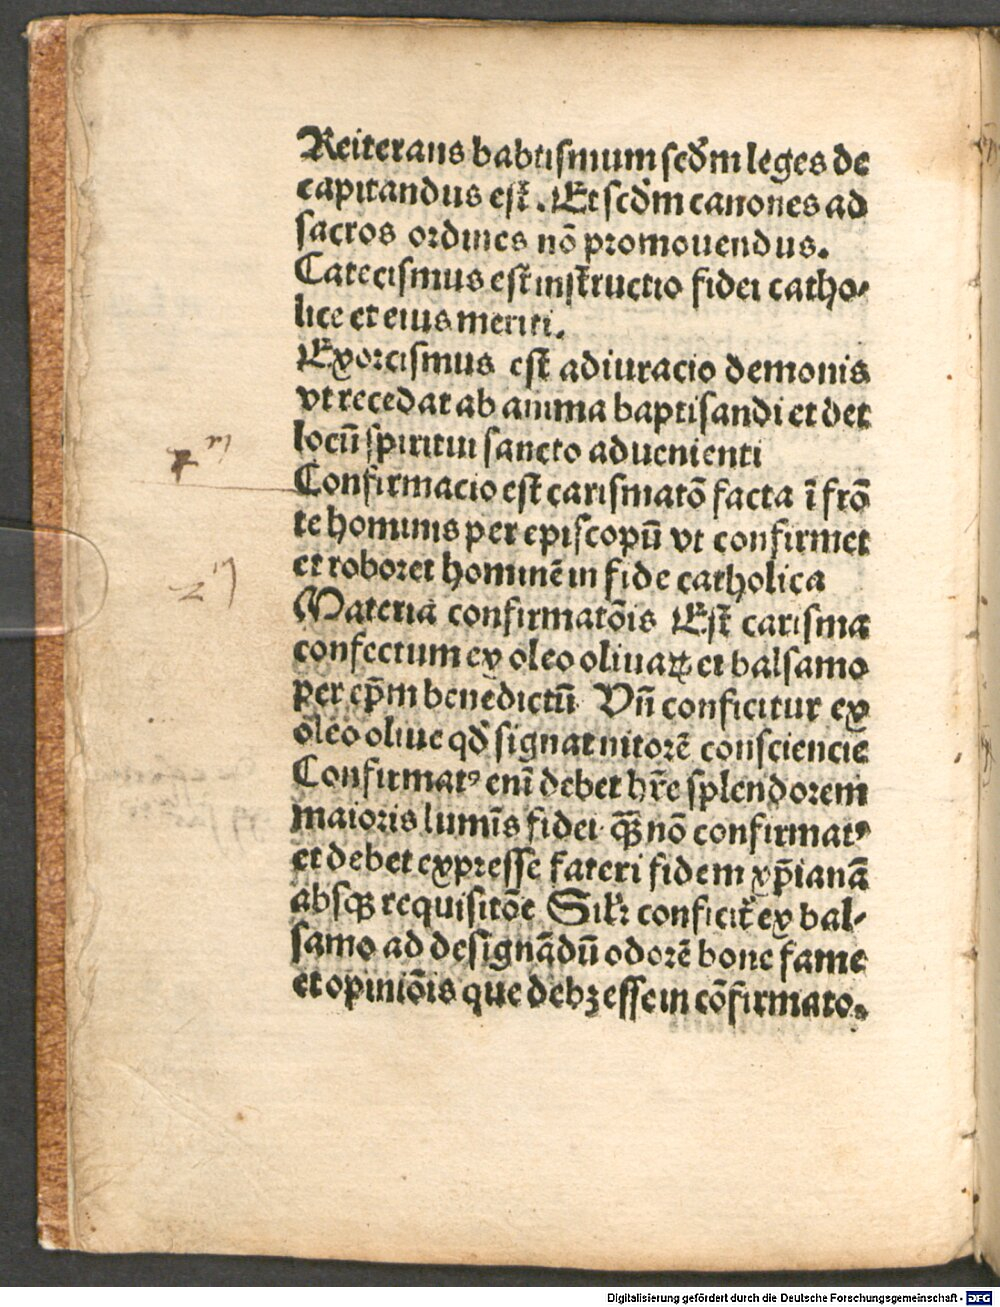 Reiterans babtismum scd̃m leges de
capitandus est̃. Et scd̃m canones ad
sacros ordines nõ promouendus.
Catecismus est̃ instructio fidei catho-
lice et eius meriti.
Exorcismus est̃ adiuracio demonis
vt recedat ab anima baptisandi et det
locũ spiritui sancto aduenienti
Confirmacio est̃ carismatõ facta ĩ frõ
te hominis per episcopũ vt confirmet
et roboret hominẽ in fide catholica
Materia confirmatõis Est̃ carisma
confectum ex oleo oliuaꝝ et balsamo
per ep̃m benedictũ Vñ conficitur ex
oleo oliue qd̃ signat nitorẽ consciencie
Confirmatꝰ enĩ debet hr̃e splendorem
maioris lumĩs fidei qꝫ̃ nõ confirmatꝰ
et debet expresse fateri fidem xp̃ianã
absqꝫ requisitõe Silr̃ conficit̃ ex bal-
samo ad designãdũ odorẽ bone fame
et opiniõis que debꝫ esse in cõfirmato.
Digitalisierung gefördert durch die Deutsche Forschungsgemeinschaft - DFG